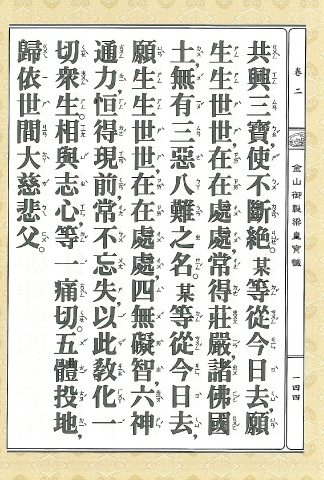 卷二
金山御製梁皇寶懺
一四四
共興三寶，使不斷絕。某等從今日去，願
生生世世，在在處處，常得莊嚴，諸佛國
土，無有三惡八難之名。某等從今日去，
願生生世世，在在處處，四無礙智，六神
通力，恒得現前，常不忘失，以此教化一
切眾生。相與志心等一痛切，五體投地，
歸依世間大慈悲父。